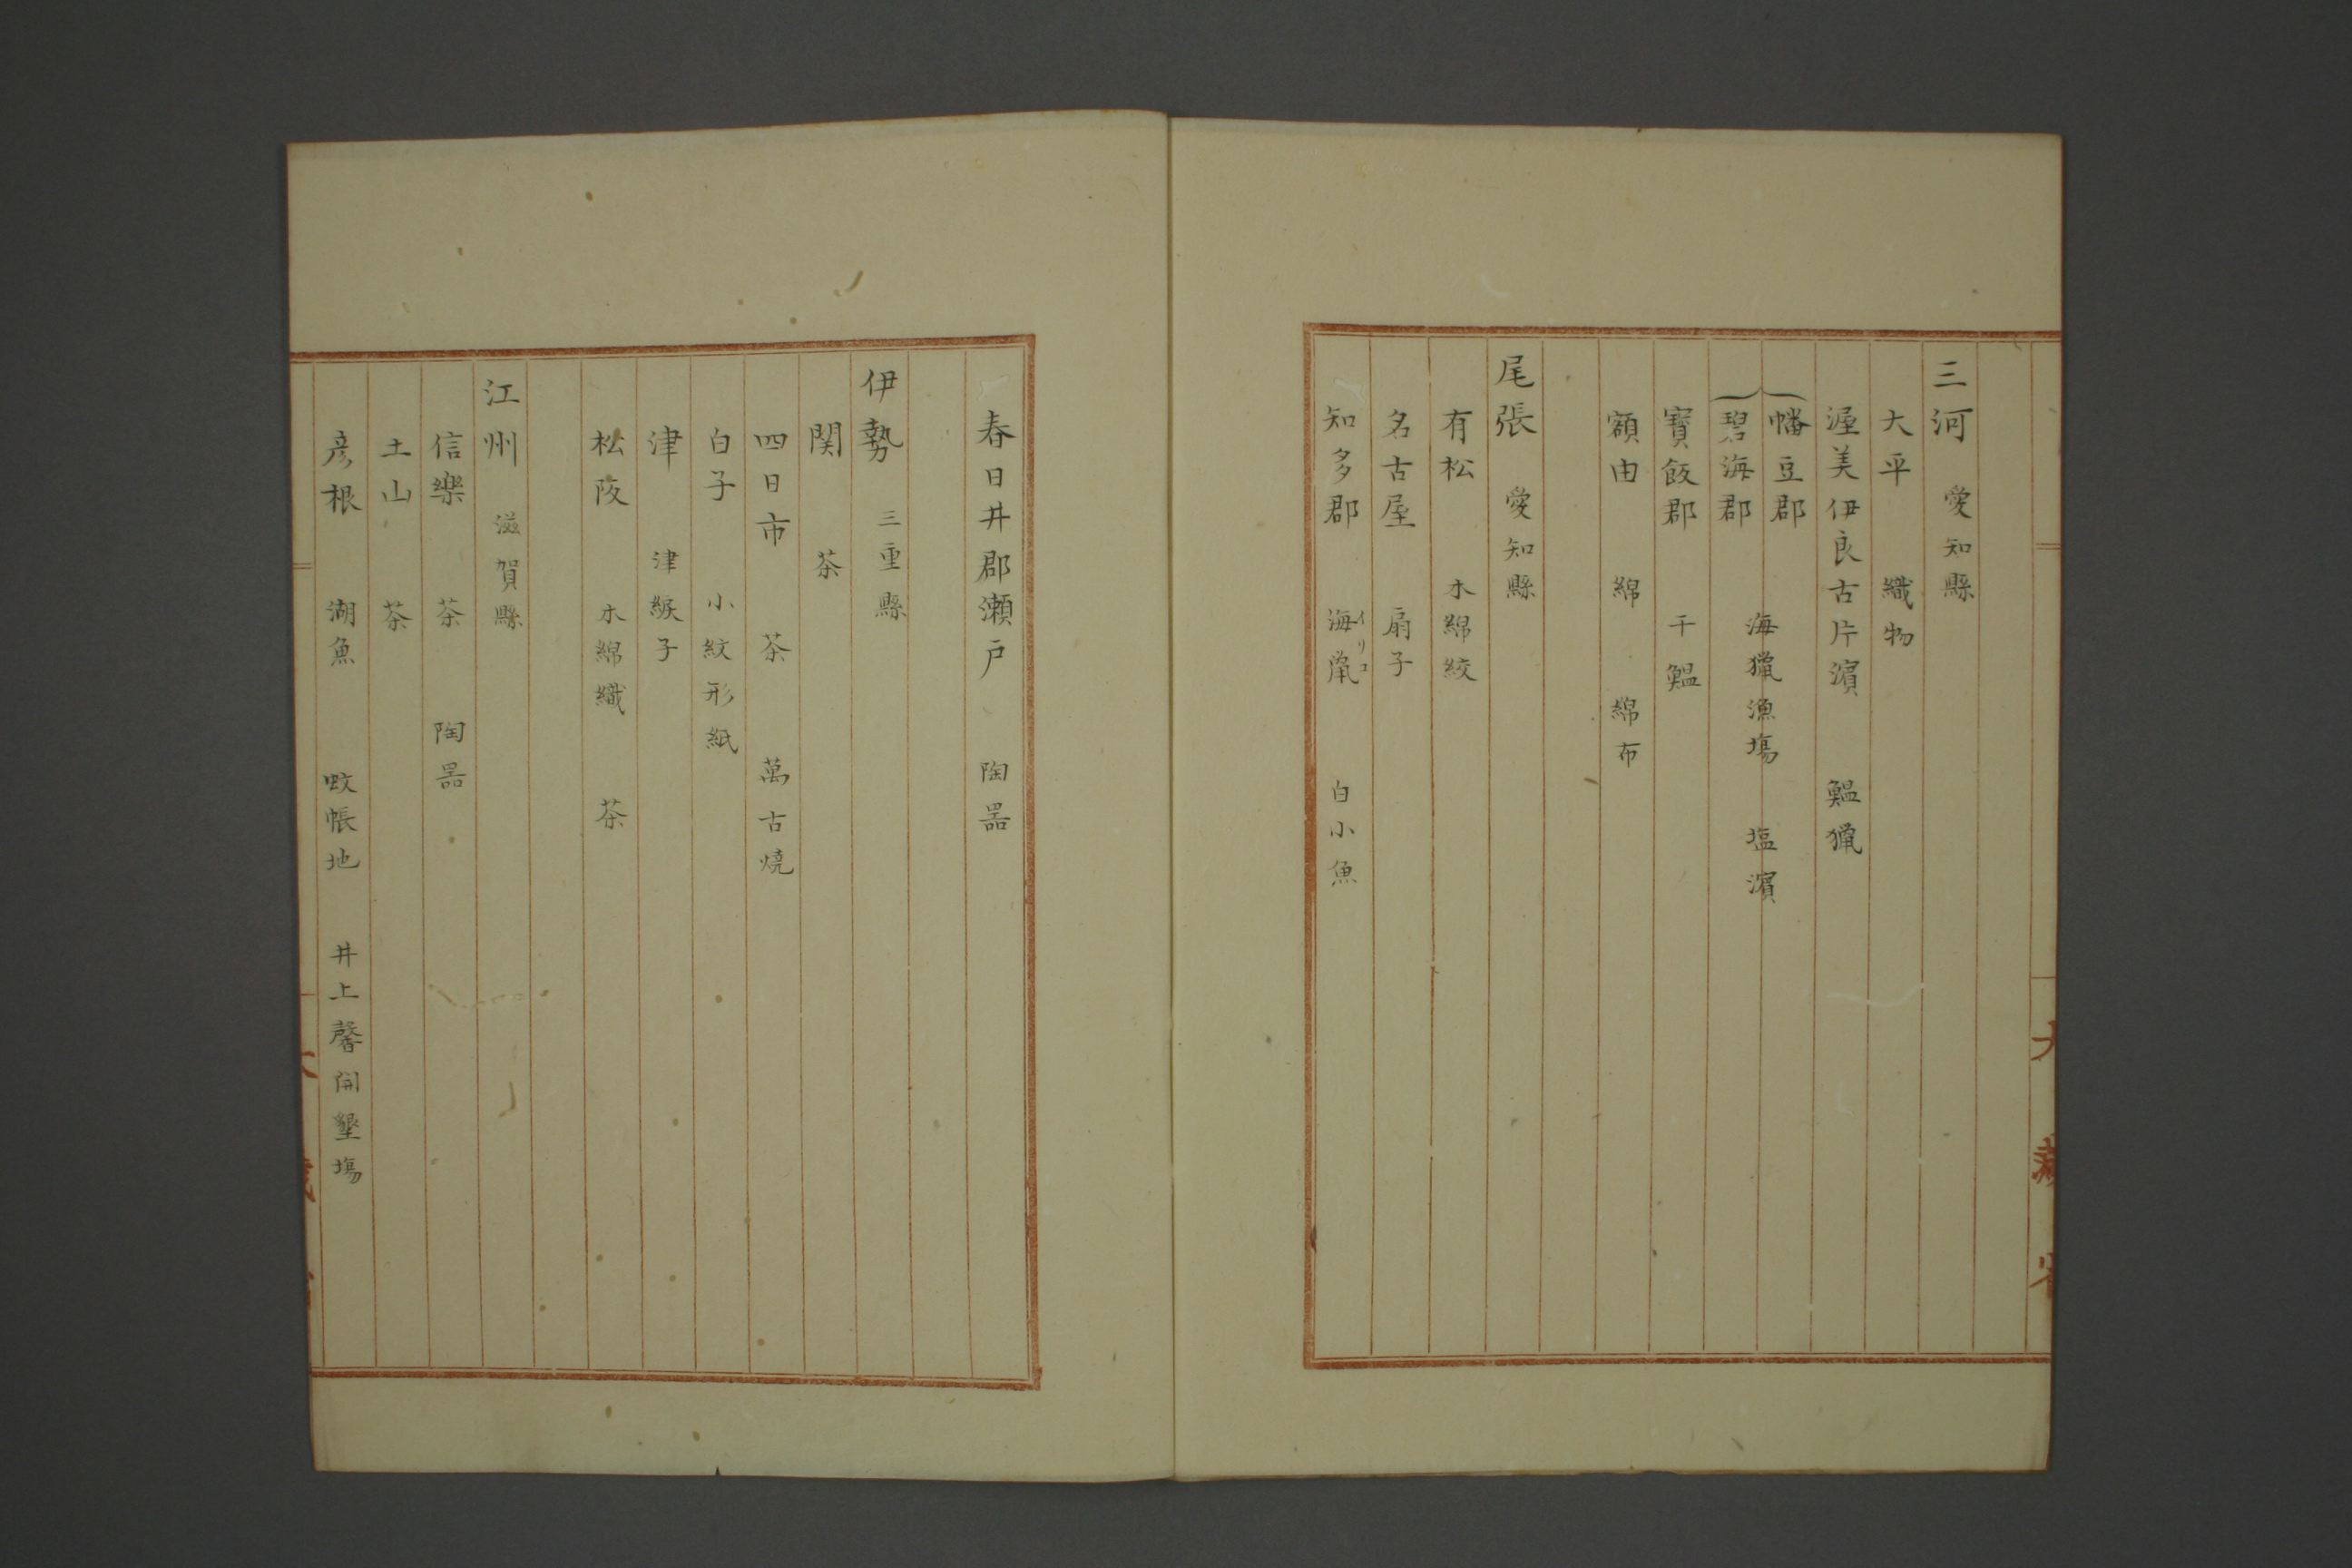 三河 愛知縣
大平 織物
渥美伊良古片濱 鰮獵
幡豆郡
碧海郡 海獵漁塲 塩濱
寶飯郡 干鰮
額由 綿 綿布
尾張 愛知縣
有松 木綿絞
名古屋 扇子
知多郡 海鼠 イリコ 白小魚
春日井郡瀬戸 陶噐
伊勢 三重縣
関 茶
四日市 茶 萬古燒
白子 小紋形紙
津 津綟子
松阪 木綿織 茶
江州 滋賀縣
信樂 茶 陶噐
土山 茶
彦根 湖魚 蚊帳地 井上馨開墾塲
大藏省